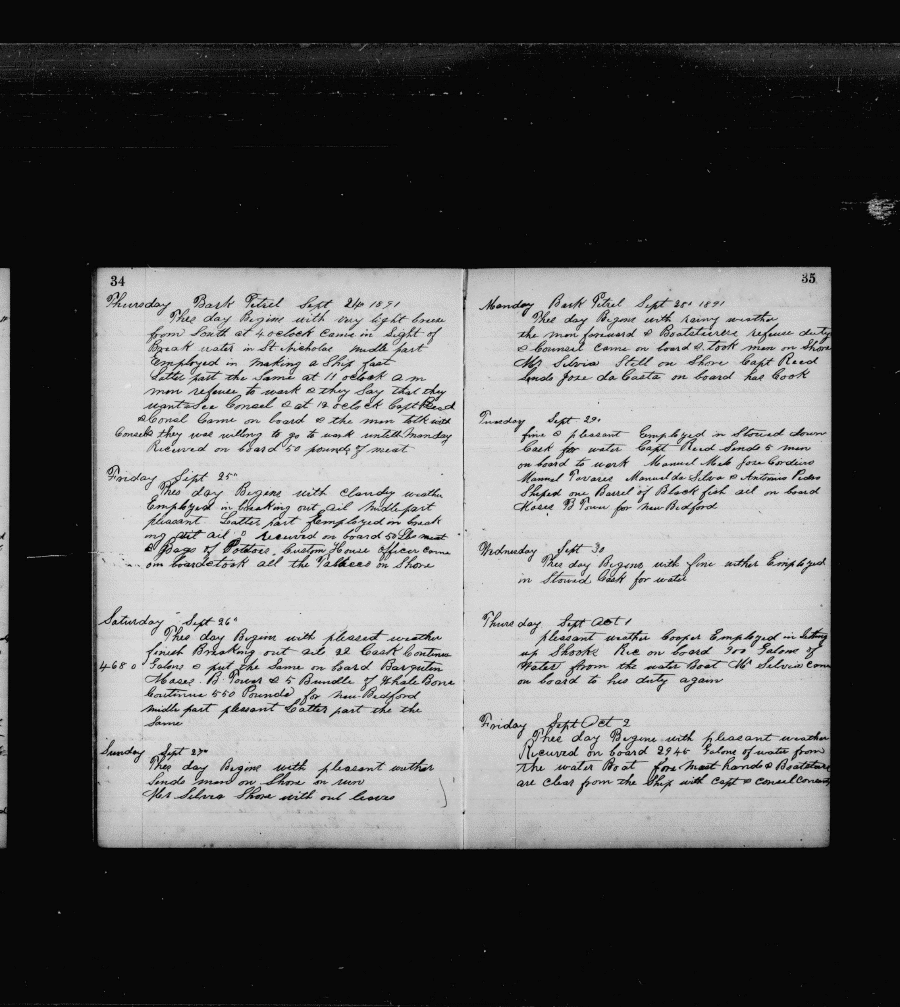 34
Thursday Bark Petrel Sept 24th 1891
Thes day Begins with very light breese
from South at 4 oclock Came in Sight of
Break water in St Nicholas midle part
Employed in making a Ship fast
Latter part the Same at 11 oclock a m
men refuse to work & they Say that they
want to See Consel & at 12 oclock Capt Reed
& Consel Came on board & the men talk with
Consel & they was willing to go to work untill Monday
Received on board 50 pounds of meat
Friday Sept 25"
Thes day Begins with cloudy weather
Employed in breaking out oil midle part
pleasant Latter part Employed in break
ing out oil & received on board 50 Lbs meat
& Bags of Potatoes. Custom House officer Came
on board & took all the on Shore
Saturday Sept 26"
Thes day Begins with pleasent weather
finish Breaking out oil 22 Cask Containe
4680 Galons & put the Same on Bard Barquten
Moses. B. Tower & 5 Bundle of Whale Bone
Containe 550 Pounds for New-Bedford
midle part pleasant Latter part the the
Same
Sunday Sept 27"
Thes day Begins with pleasent wether
Sends men on Shore on
Mr Silvia Shore with out leaves
35
Monday Bark Petrel Sept 28" 1891
Thes day Begins with rainy weather
the men forward & Boatsteirers refuse duty
& Counsel came on board & took men on Shore
Mr Silvia Still on Shore Capt Reed
Sends Jose da Costa on board has Cook
Tuesday Sept 29"
fine & pleasant Employed in Stowed down
Cask for water Capt Reed Sends 5 men
on board to work Manuel Jose Cordeiro
Manuel Tavares Manuel da Silva & Antonio Pedro
Shiped one Barrel of Black fish oil on board
Moses B Tower for New Bedford
Wednesday Sept 30
Thes day Begins with fine wither Employed
in Stowed Cask for water
Thursday Sept Oct 1
pleasent weather Cooper Employed in Setting
up Shooks Rec on board 900 Galons of
Water from the water Boat Mr Selvia came
on board to his duty again
Friday Sept Oct 2
Thes day Begins with pleasant weather
Received on board 2945 Galons of water from
the water Boat fore mast hands & Boatsteir
are Clear from the Ship with Capt & Consel